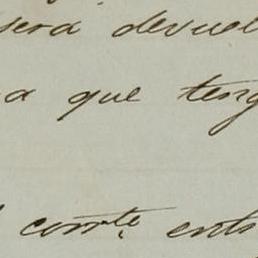 será devuel
a que teng
comte entr